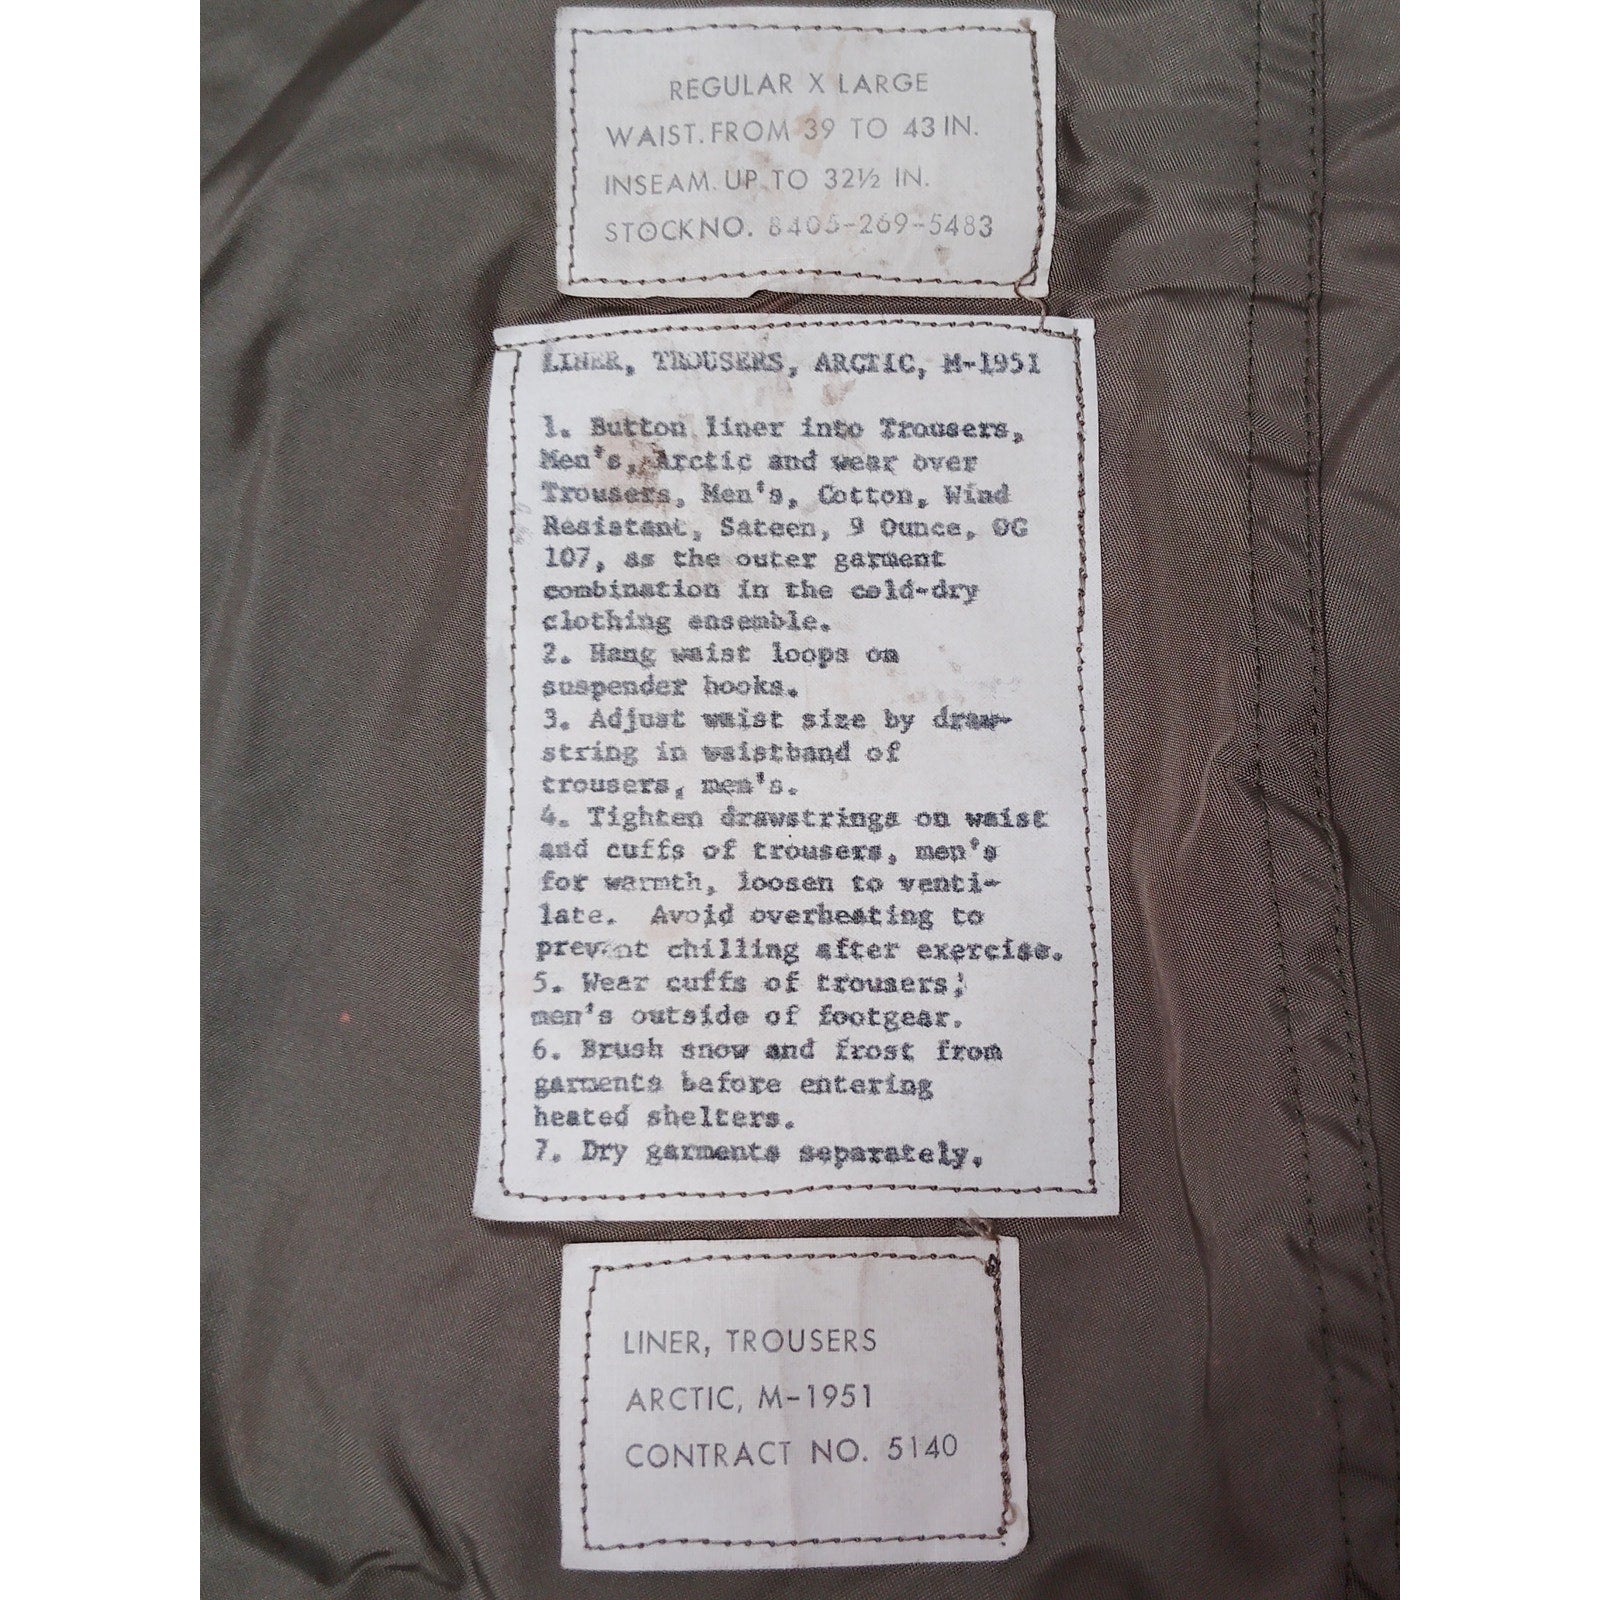 REGULAR X LARGE
WAIST. FROM 39 TO 43 IN.
INSEAM. UP TO 32½ IN.
STOCK NO. 8405-269-5483
LINER, TROUSERS, ARCTIC, M-1951
1. Button liner into Trousers,
Men's, Arctic and wear over
Trousers, Men's, Cotton, Wind
Resistant, Sateen, 9 Ounce, OG
107, as the outer garment
combination in the cold-dry
clothing ensemble.
2. Hang waist loops on
suspender hooks.
3. Adjust waist size by draw-
string in waistband of
trousers, men's.
4. Tighten drawstrings on waist
and cuffs of trousers, men's
for warmth, loosen to venti-
late. Avoid overheating to
prevent chilling after exercise.
5. Wear cuffs of trousers,
men's outside of footgear.
6. Brush snow and frost from
garments before entering
heated shelters.
7. Dry garments separately.
LINER, TROUSERS
ARCTIC, M-1951
CONTRACT NO. 5140